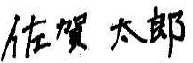 佐賀 太郎